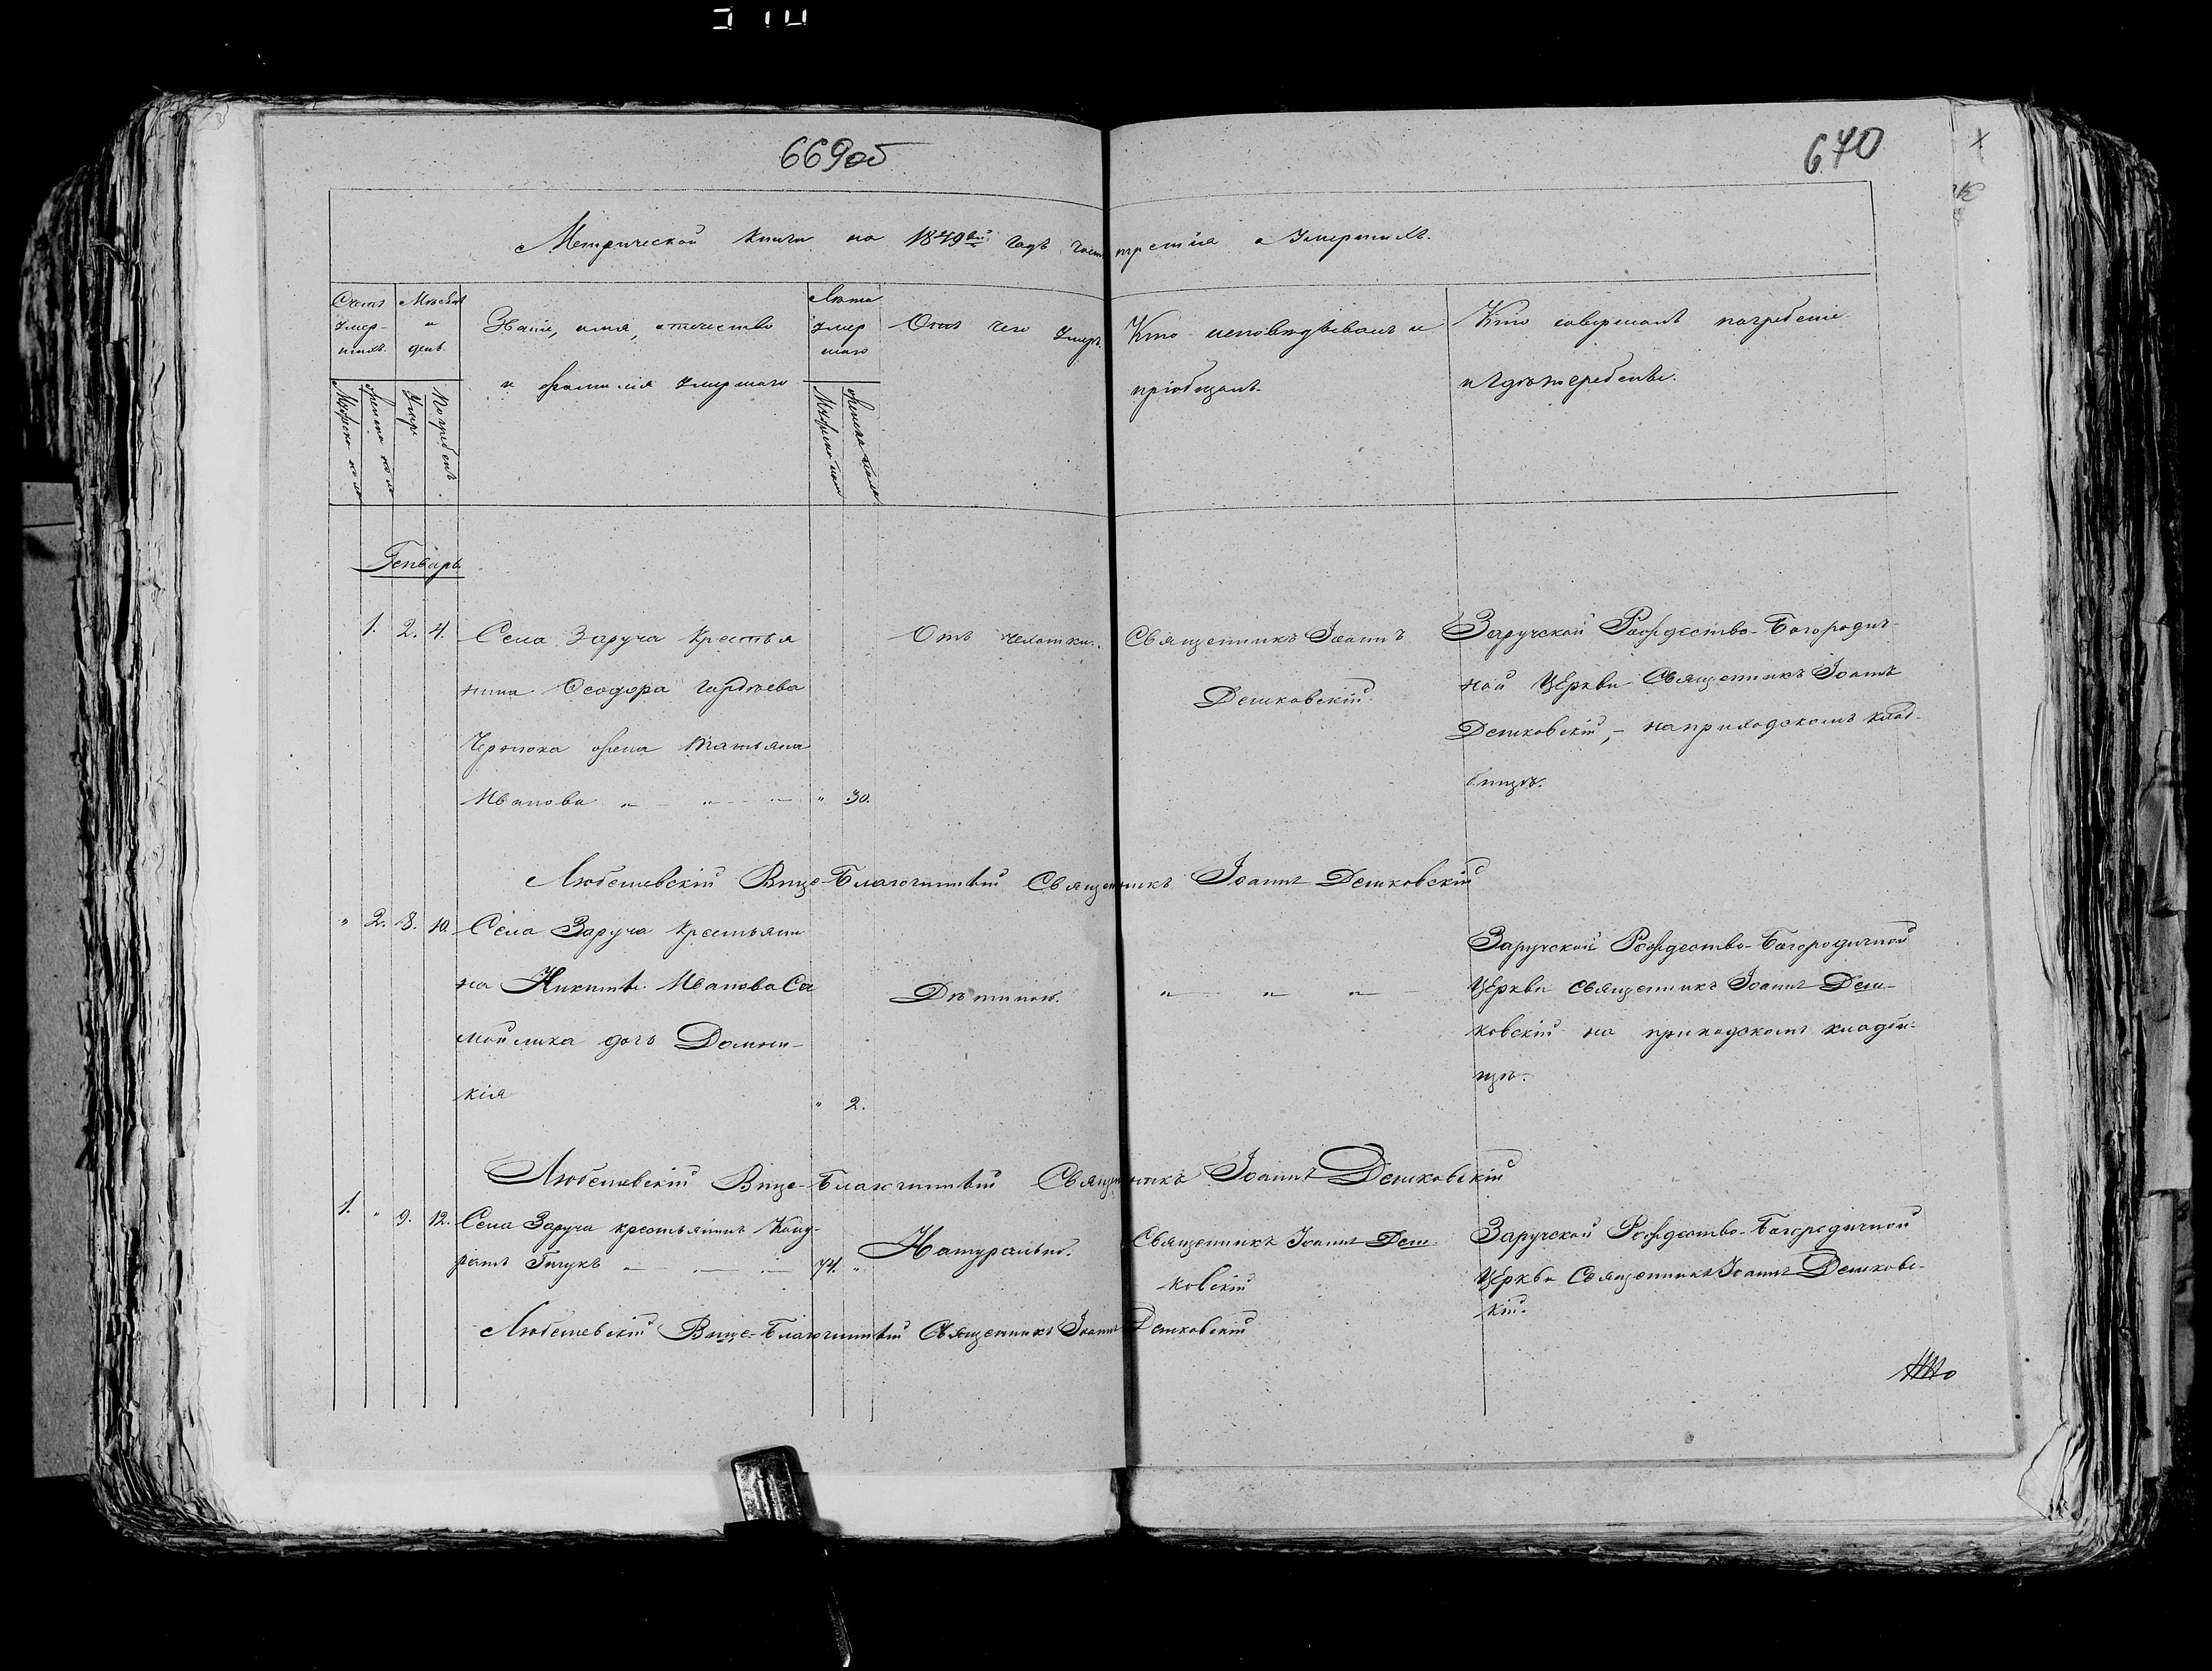 669об
670
Метрической книги на 1849вый годъ часть третiя о Умершихъ.
Счетъ умер-шихъ.
Мѣсяцъ и день.
Званiе, имя, отчество
и фамилiя умершаго
Лѣта умер шаго
Отъ чего умеръ.
Кто исповѣдывалъ и
прiобщалъ.
Кто совершалъ погребенiе
и гдѣ погребены.
Мужеска пола
Женска пола
Умеръ
Погребенъ.
Мужеска пола
Женска пола
Генварь
1. 2. 4. Села Заруча крестья
нина Ѳеодора Гордѣева
жена Татьяна
Иванова " " " " 30.
Отъ чахотки.
Священникъ Iоаннъ
Дешковскiй.
Заручской Рождество-Богородич-
ной Церкви Священникъ Iоаннъ
Дешковскiй, - на приходскомъ клад-
бищѣ.
Любешевскiй Вице-Благочинный Священникъ Iоаннъ Дешковскiй
" 2. 8. 10. Села Заруча крестьяни
на Никиты Иванова Са
мойлика дочь Домни-
кiя " 2.
Дѣтиною.
" " "
Заручской Рождество-Богородичной
Церкви Священникъ Iоаннъ Деш-
ковскiй на приходскомъ кладби-
щѣ.
Любешевскiй Вице-Благочинный Священникъ Iоаннъ Дешковскiй
1. " 9. 12. Села Заруча крестьянинъ Конд-
ратъ 74. "
Натурально.
Священникъ Iоаннъ Деш-
ковскiй
Заручской Рождество-Богородичной
Церкви Священникъ Iоаннъ Дешковс-
кiй.
Любешевскiй Вице-Благочинный Священникъ Iоаннъ Дешковскiй